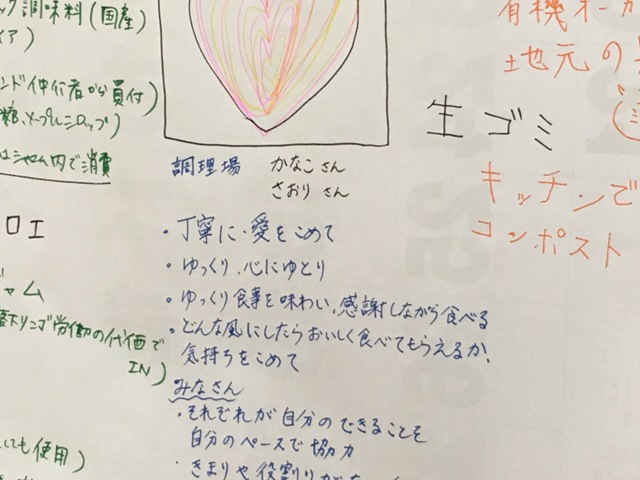 ック調味料(国産)
イア)
ンド仲行者から買付)
糖、メープルシロップ)
シャロム内で消費
ロエ
ジャム
労働の代価で
IN)
しても使用)
調理場 かなこさん
さおりさん
・丁寧に・愛をこめて
・ゆっくり、心にゆとり
・ゆっくり食事を味わい、感謝しながら食べる
・どんな風にしたらおいしく食べてもらえるか、
気持ちをこめて
みなさん
・それぞれが自分のできることを
自分のペースで協力
・きまりや役割りが
有機オーガ
地元の
生ゴミ
キッチンで
コンポスト